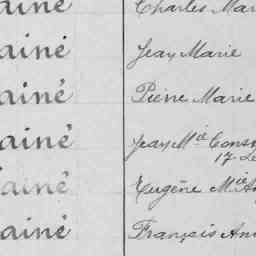 ainé Charles Mar
ainé Jean Marie
ainé Pierre Marie
ainé Jean Mie Cons
17
ainé Eugène Mie
ainé François An